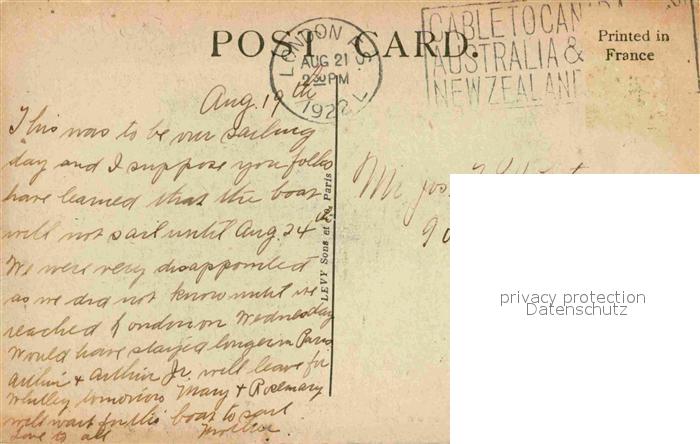 POST CARD.
Printed in
France
LONDON F.S.
AUG 21
2 30 PM
1922
CABLE TO CANADA
AUSTRALIA &
NEW ZEALAND
Aug. 19th
This was to be our sailing
day and I suppose you folks
have learned that the boat
will not sail until Aug. 24th
We were very disappointed
as we did not know until we
reached London on Wednesday
Would have stayed longer in Paris
Arthur & Arthur Jr. will leave for
Whitley tomorrow Mary & Rosemary
will wait for this boat to sail
Love to all Mother
LEVY Sons et Co, Paris
Mr. Jos.
privacy protection
Datenschutz